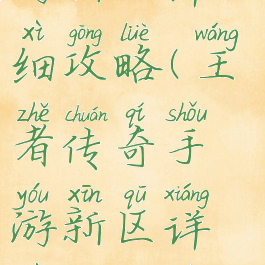 xì gōng lüè wáng
细攻略(王
zhě chuán qí shǒu
者传奇手
yóu xīn qū xiáng
游新区详